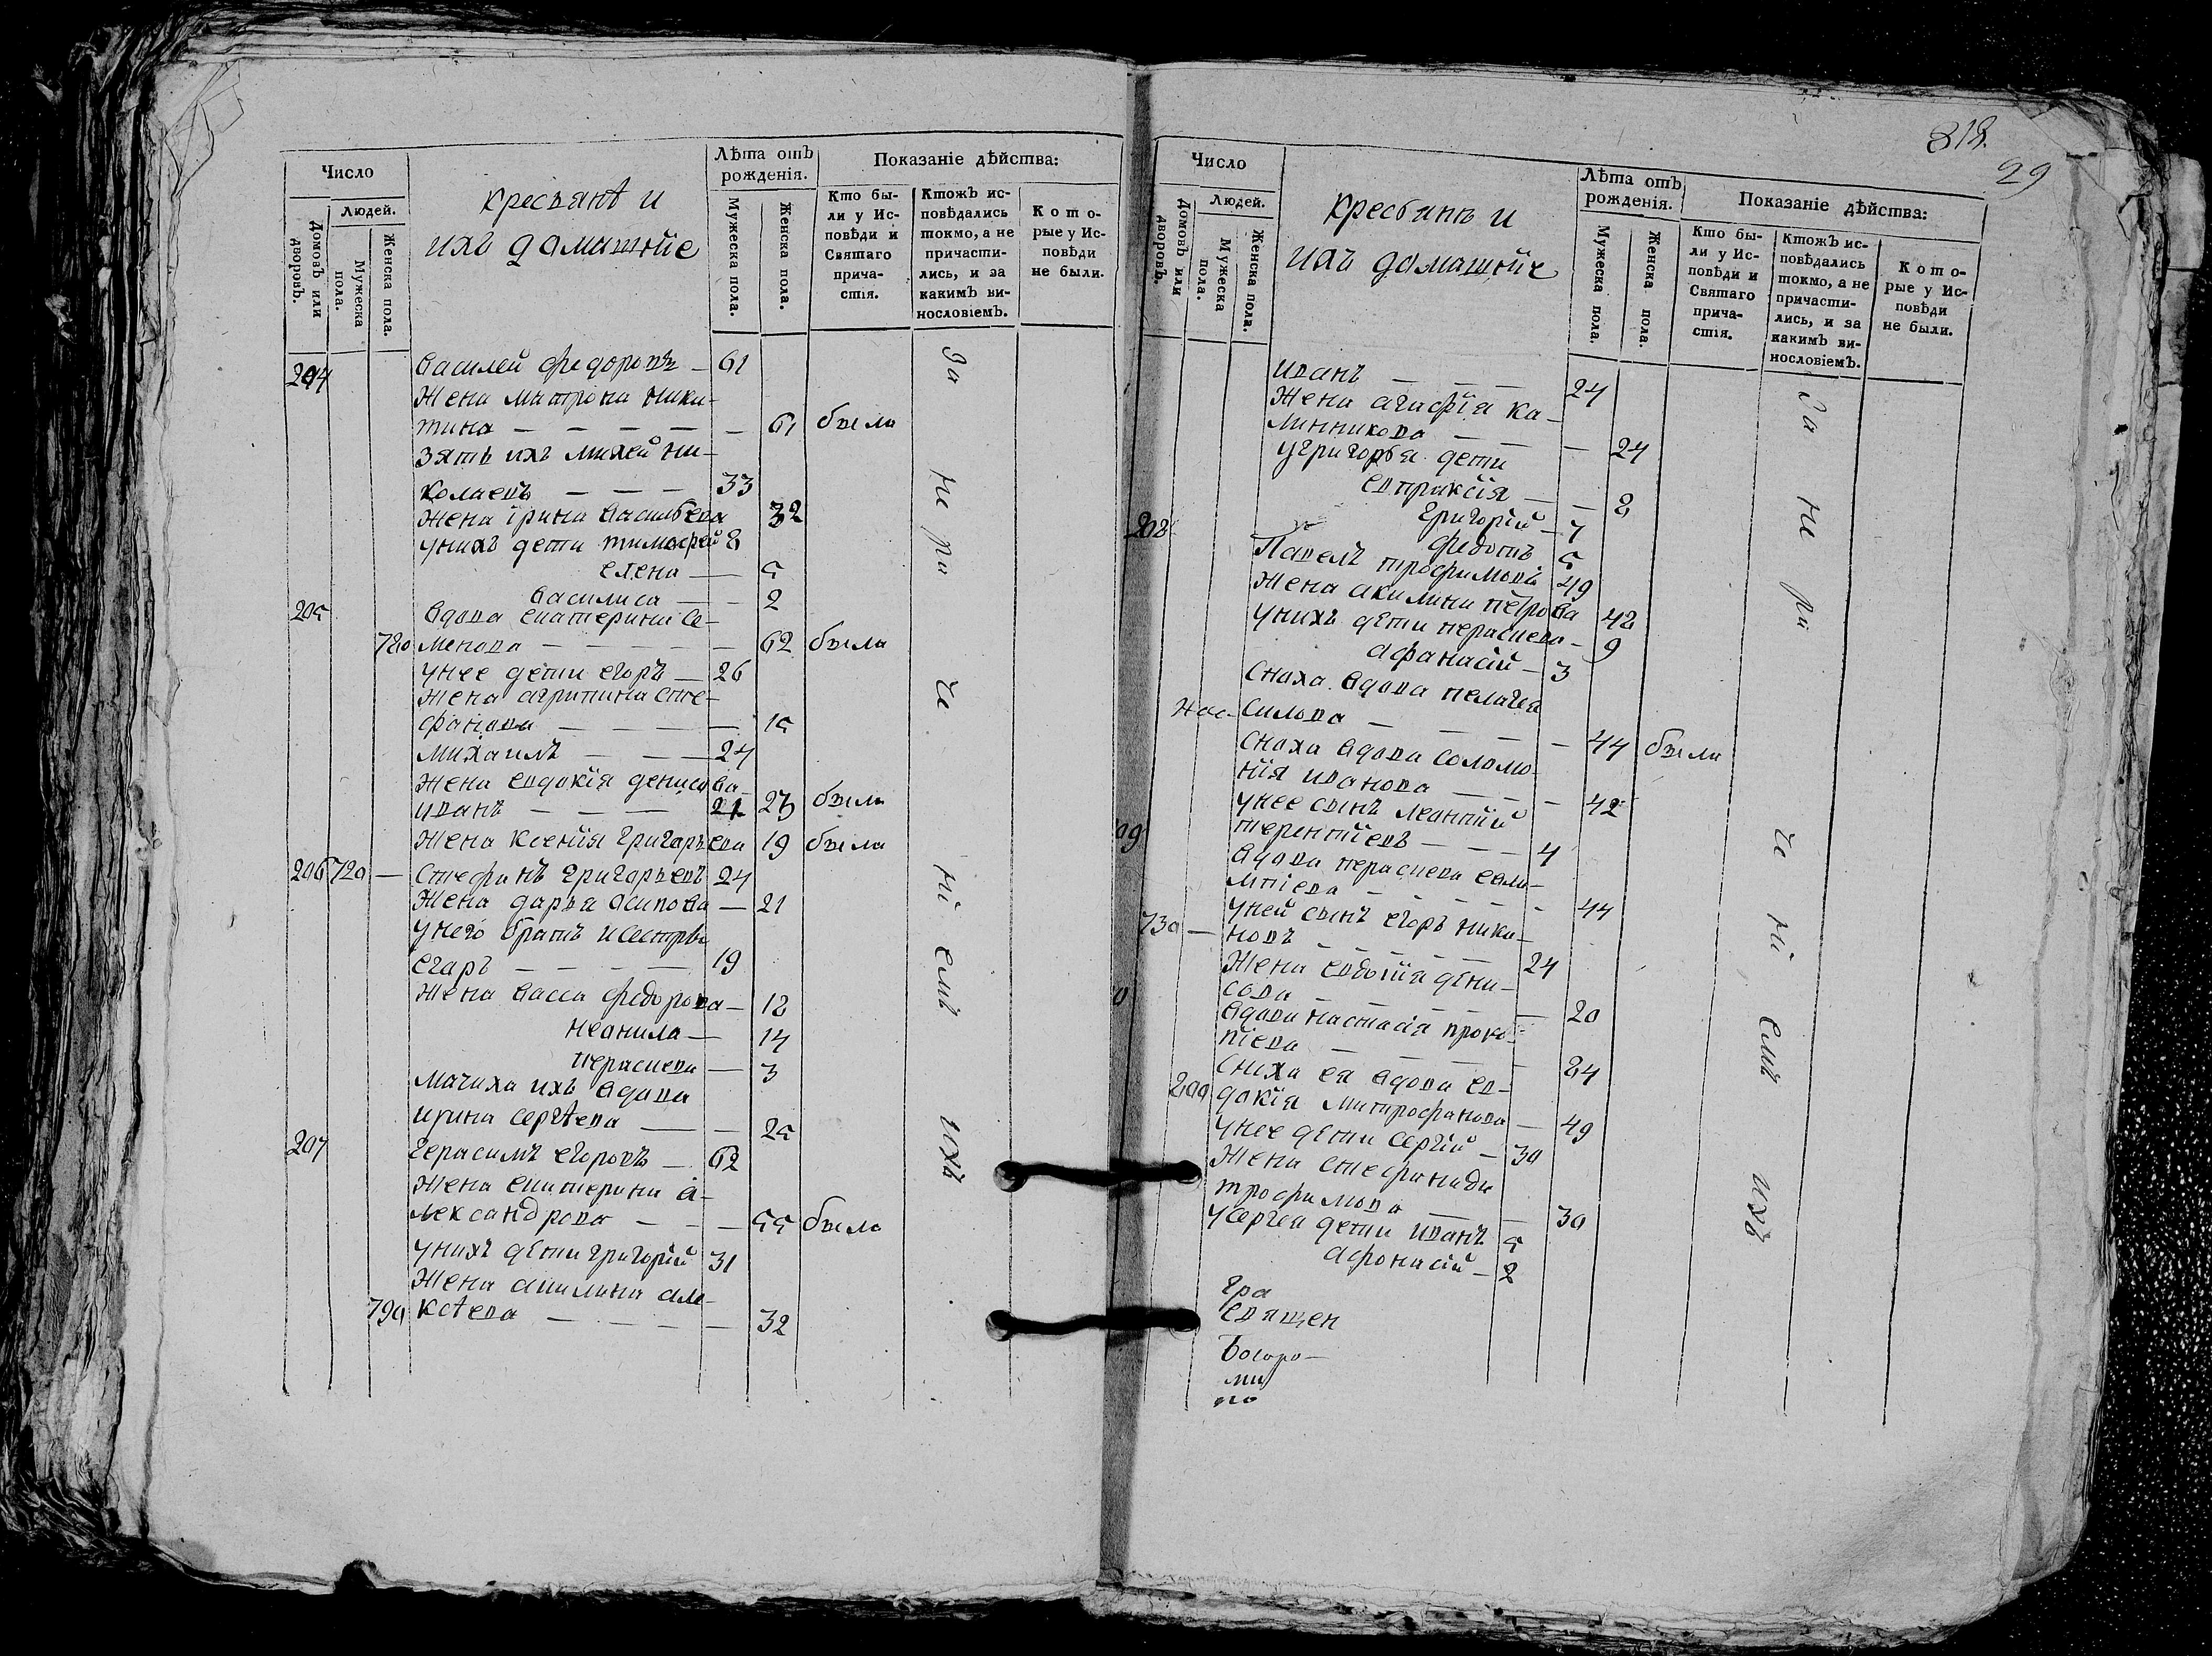 Число
Людей.
Домовъ или дворовъ.
Мужеска пола.
Женска пола.
кресьянѣ и
ихъ домашнйе
Лѣта отъ рожденія.
Мужеска пола.
Женска пола.
Показаніе дѣйства:
Кто были у Исповѣди и Святаго причастія.
Ктожъ исповѣдались токмо, а не причастились, и за какимъ винословіемъ.
Которые у Исповѣди не были.
204 Василей федоровъ — 61
Жена матрона ники-
тина — — — — — 61 была
Зять ихъ михей ни-
колаевъ — — — 33
Жена ірина васильева 32
унихъ дети тимофей 8
елена — 5
василиса — 2
205 вдова екатерина се-
720 менова — — — — 62 была
унее дети егоръ — 26
Жена агрипина сте-
фанова — — — — 15
михаилъ — — — 24
Жена евдокія денисова
иванъ — — — 21 23 была
Жена ксенйя григорьева 19 была
206 720 — Стефанъ григорьевъ 24
Жена дарья осипова — 21
унего братъ и сестры
егаръ — — — — 19
Жена васса федорова — 18
неонила — 14
параскева — 3
мачиха ихъ вдова
ирина сергѣева — — 25
207 герасимъ егоровъ — 62
Жена екатерина а-
лександрова — — — 55 была
унихъ дѣти григорій 31
Жена акилина але-
790 ксѣева — — — — 32
За
не
ра
че
ні
емъ
ихъ
818.
29
Число
Людей.
Домовъ или дворовъ.
Мужеска пола.
Женска пола.
кресьянъ и
ихъ домашнйе
Лѣта отъ рожденія.
Мужеска пола.
Женска пола.
Показаніе дѣйства:
Кто были у Исповѣди и Святаго причастія.
Ктожъ исповѣдались токмо, а не причастились, и за какимъ винословіемъ.
Которые у Исповѣди не были.
иванъ — — — 24
Жена агафія ка-
линникова — — — 24
угригорья дети
евпраксія — — 8
григорій — 7
федотъ 5
208 Павелъ трофимовъ 49
Жена акилина петрова 48
унихъ дѣти параскева — 9
афанасій — 3
Сноха вдова пелагея
силова — — — — 44 была
сноха вдова соломо-
нія иванова — — — 42
унее сынъ леантій
09 терентйевъ — — — 4
вдова параскева евла-
мпіева — — — — 44
уней сынъ егоръ ники-
730 — новъ — — — — 24
Жена евдокія дени-
сова — — — — 20
0 вдова настасія проко-
піева — — — — 84
сноха ея вдова ев-
800 докія митрофанова — 49
унее дѣти сергій — 30
Жена стефанида
трофимова — — 30
усергея дети иванъ 5
афонасій — 2
гра
священ
Богоро—
ми
по
За
не
ра
че
ні
емъ
ихъ